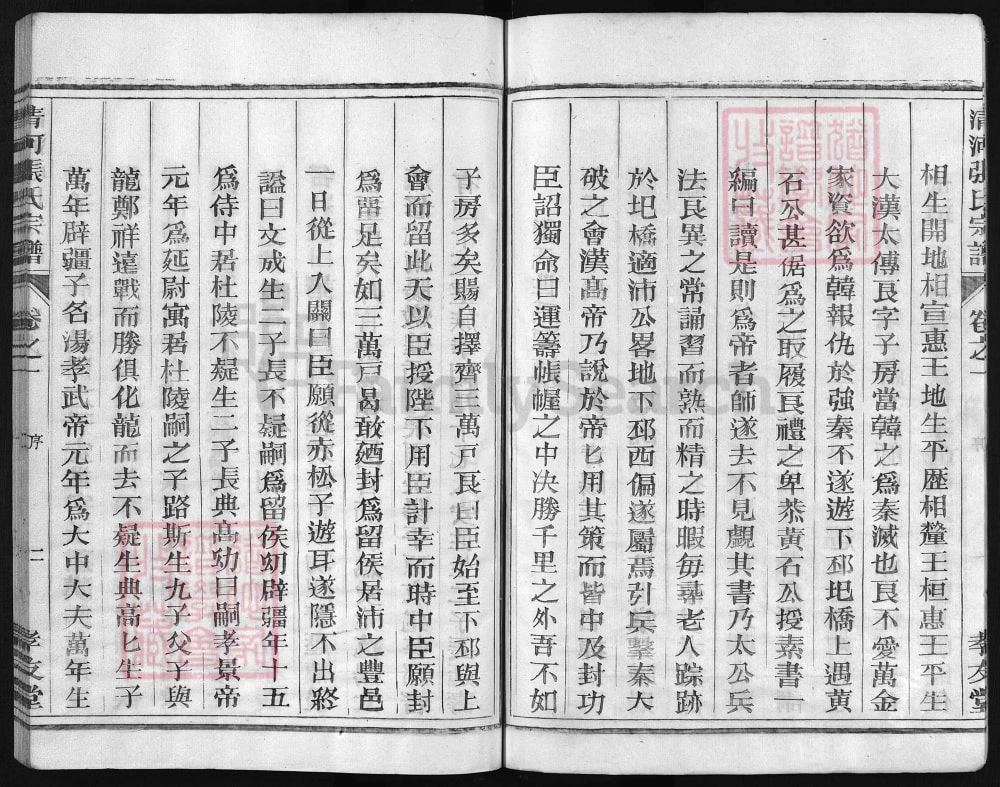 清河張氏宗譜 卷之一 序 孝友堂
相生開地相宣惠王地生平歷相釐王桓惠王平生
大漢太傅良字子房當韓之爲秦滅也良不愛萬金
家資欲爲韓報仇於強秦不遂遊下邳圯橋上遇黃
石公甚倨爲之取履良禮之卑恭黃石公授素書一
編曰讀是則爲帝者師遂去不見覷其書乃太公兵
法良異之常誦習而熟而精之時暇毋尋老人踪跡
於圯橋適沛公畧地下邳西偏遂屬焉引兵擊秦大
破之會漢高帝乃說於帝匕用其策而皆中及封功
臣詔獨命曰運籌帳幄之中决勝千里之外吾不如
子房多矣賜自擇齊三萬戸良曰臣始至下邳與上
會而留此天以臣授陛下用臣計幸而時中臣願封
爲畱足矣如三萬戸曷敢廼封爲留侯居沛之豐邑
一日從上入關曰臣願從赤松子遊耳遂隱不出終
謚曰文成生二子長不疑嗣爲留侯㓜辟疆年十五
爲侍中居杜陵不疑生二子長典高㓛曰嗣孝景帝
元年爲延尉寓居杜陵嗣之子路斯生九子父子與
龍鄭祥遠戰而勝俱化龍而去不疑生典高匕生子
萬年辟疆子名湯孝武帝元年爲大中大夫萬年生
清河張氏宗譜 卷之一 序 二 孝友堂
FamilySearch